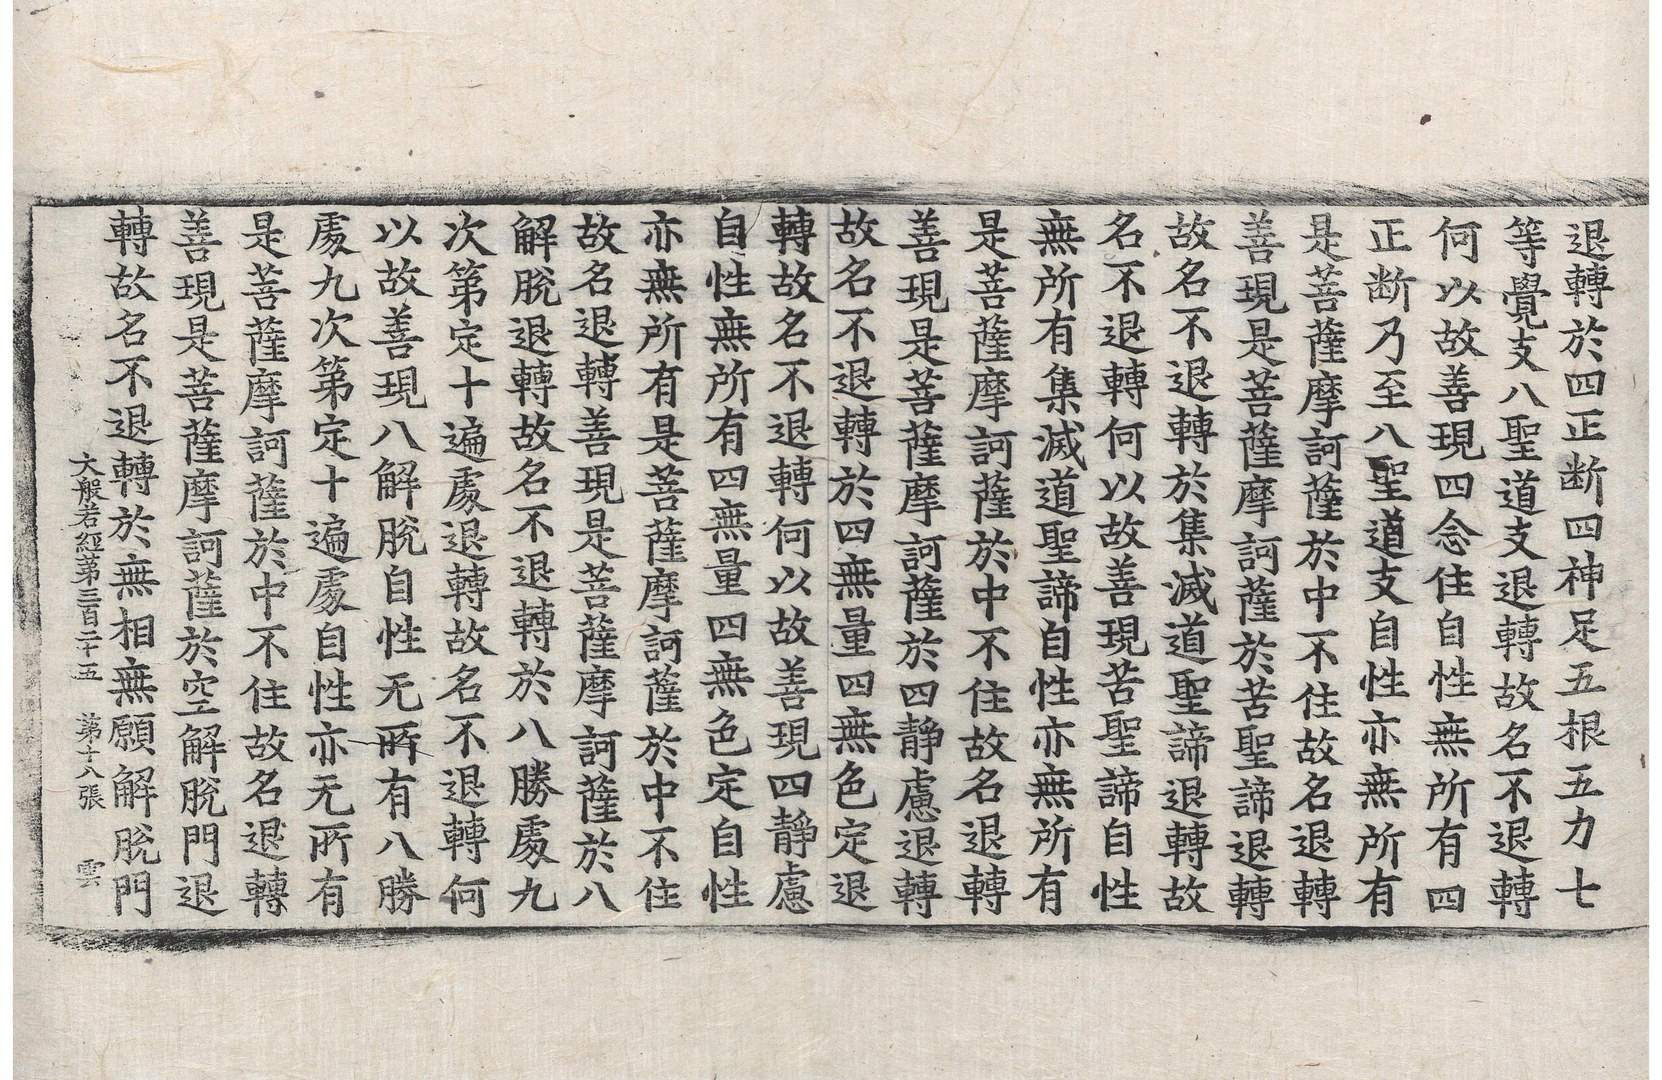 退轉於四正断四神足五根五力七
等覺支八聖道支退轉故名不退轉
何以故善現四念住自性無所有四
正断乃至八聖道支自性亦無所有
是菩薩摩訶薩於中不住故名退轉
善現是菩薩摩訶薩於苦聖諦退轉
故名不退轉於集滅道聖諦退轉故
名不退轉何以故善現苦聖諦自性
無所有集滅道聖諦自性亦無所有
是菩薩摩訶薩於中不住故名退轉
善現是菩薩摩訶薩於四靜慮退轉
故名不退轉於四無量四無色定退
轉故名不退轉何以故善現四靜慮
自性無所有四無量四無色定自性
亦無所有是菩薩摩訶薩於中不住
故名退轉善現是菩薩摩訶薩於八
解脫退轉故名不退轉於八勝處九
次第定十遍處退轉故名不退轉何
以故善現八解脫自性无所有八勝
處九次第定十遍處自性亦无所有
是菩薩摩訶薩於中不住故名退轉
善現是菩薩摩訶薩於空解脫門退
轉故名不退轉於無相無願解脫門
大般若經第三百二十五 第十八張 雲